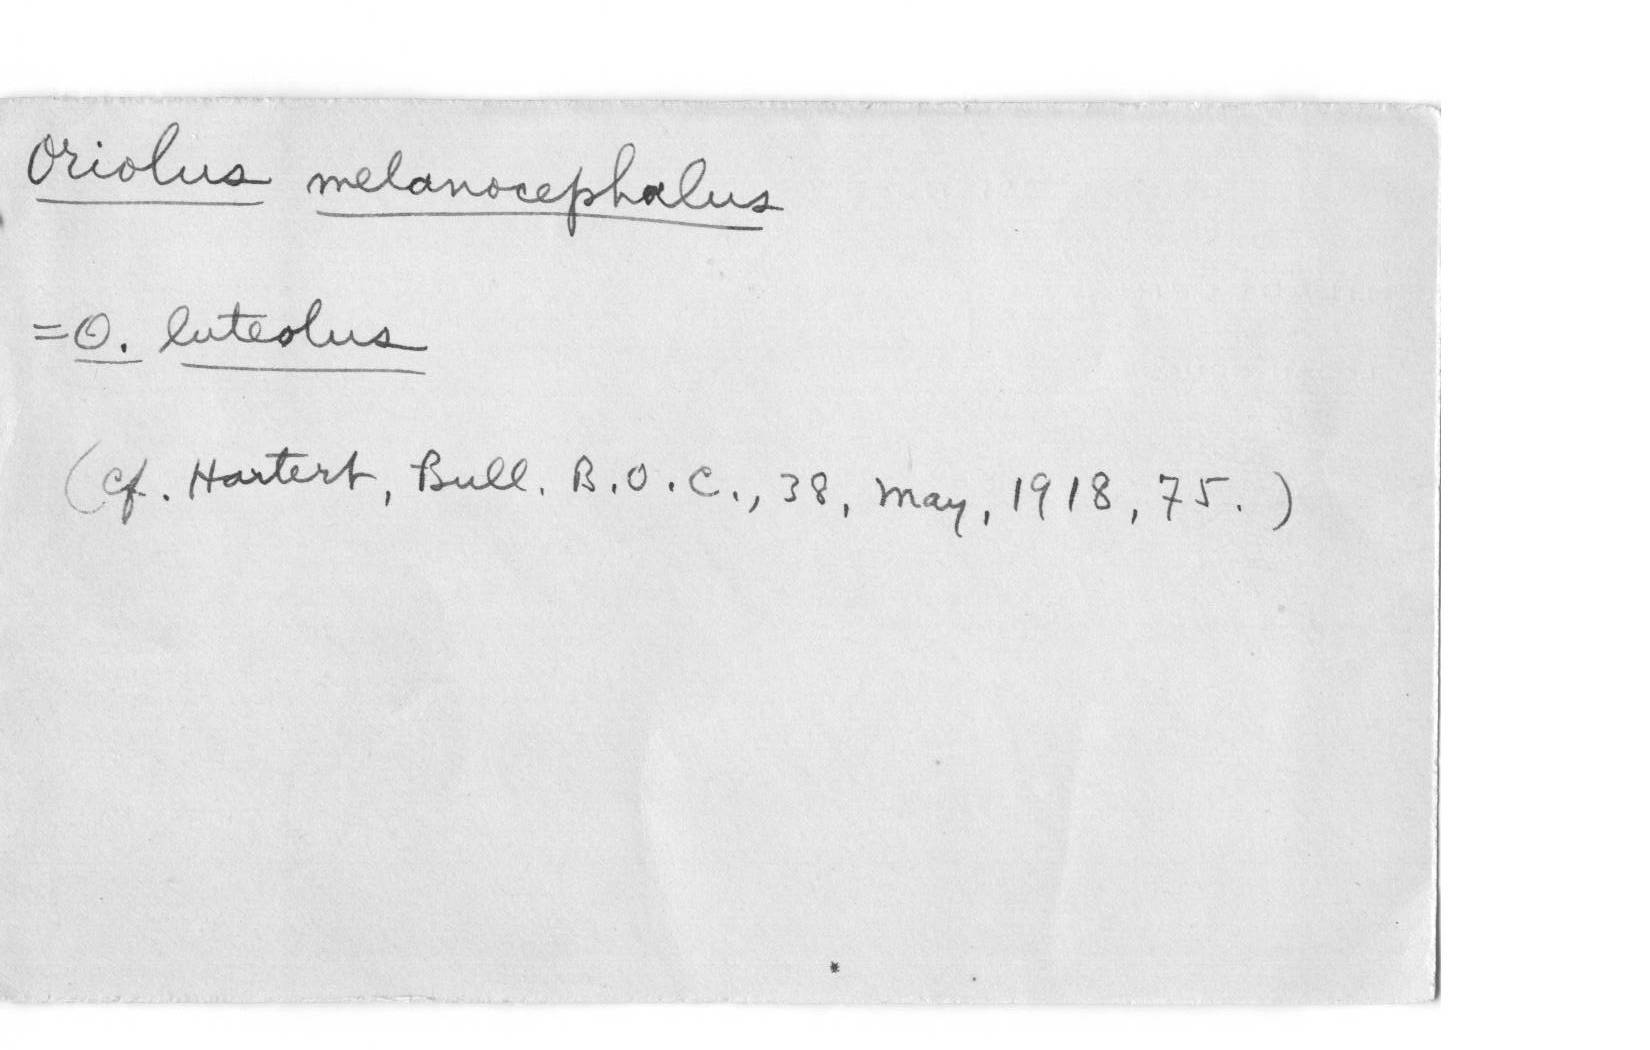 Oriolus melanocephalus
=O. luteolus
(cf. Hartert, Bull. B.O.C., 38, May, 1918, 75.)